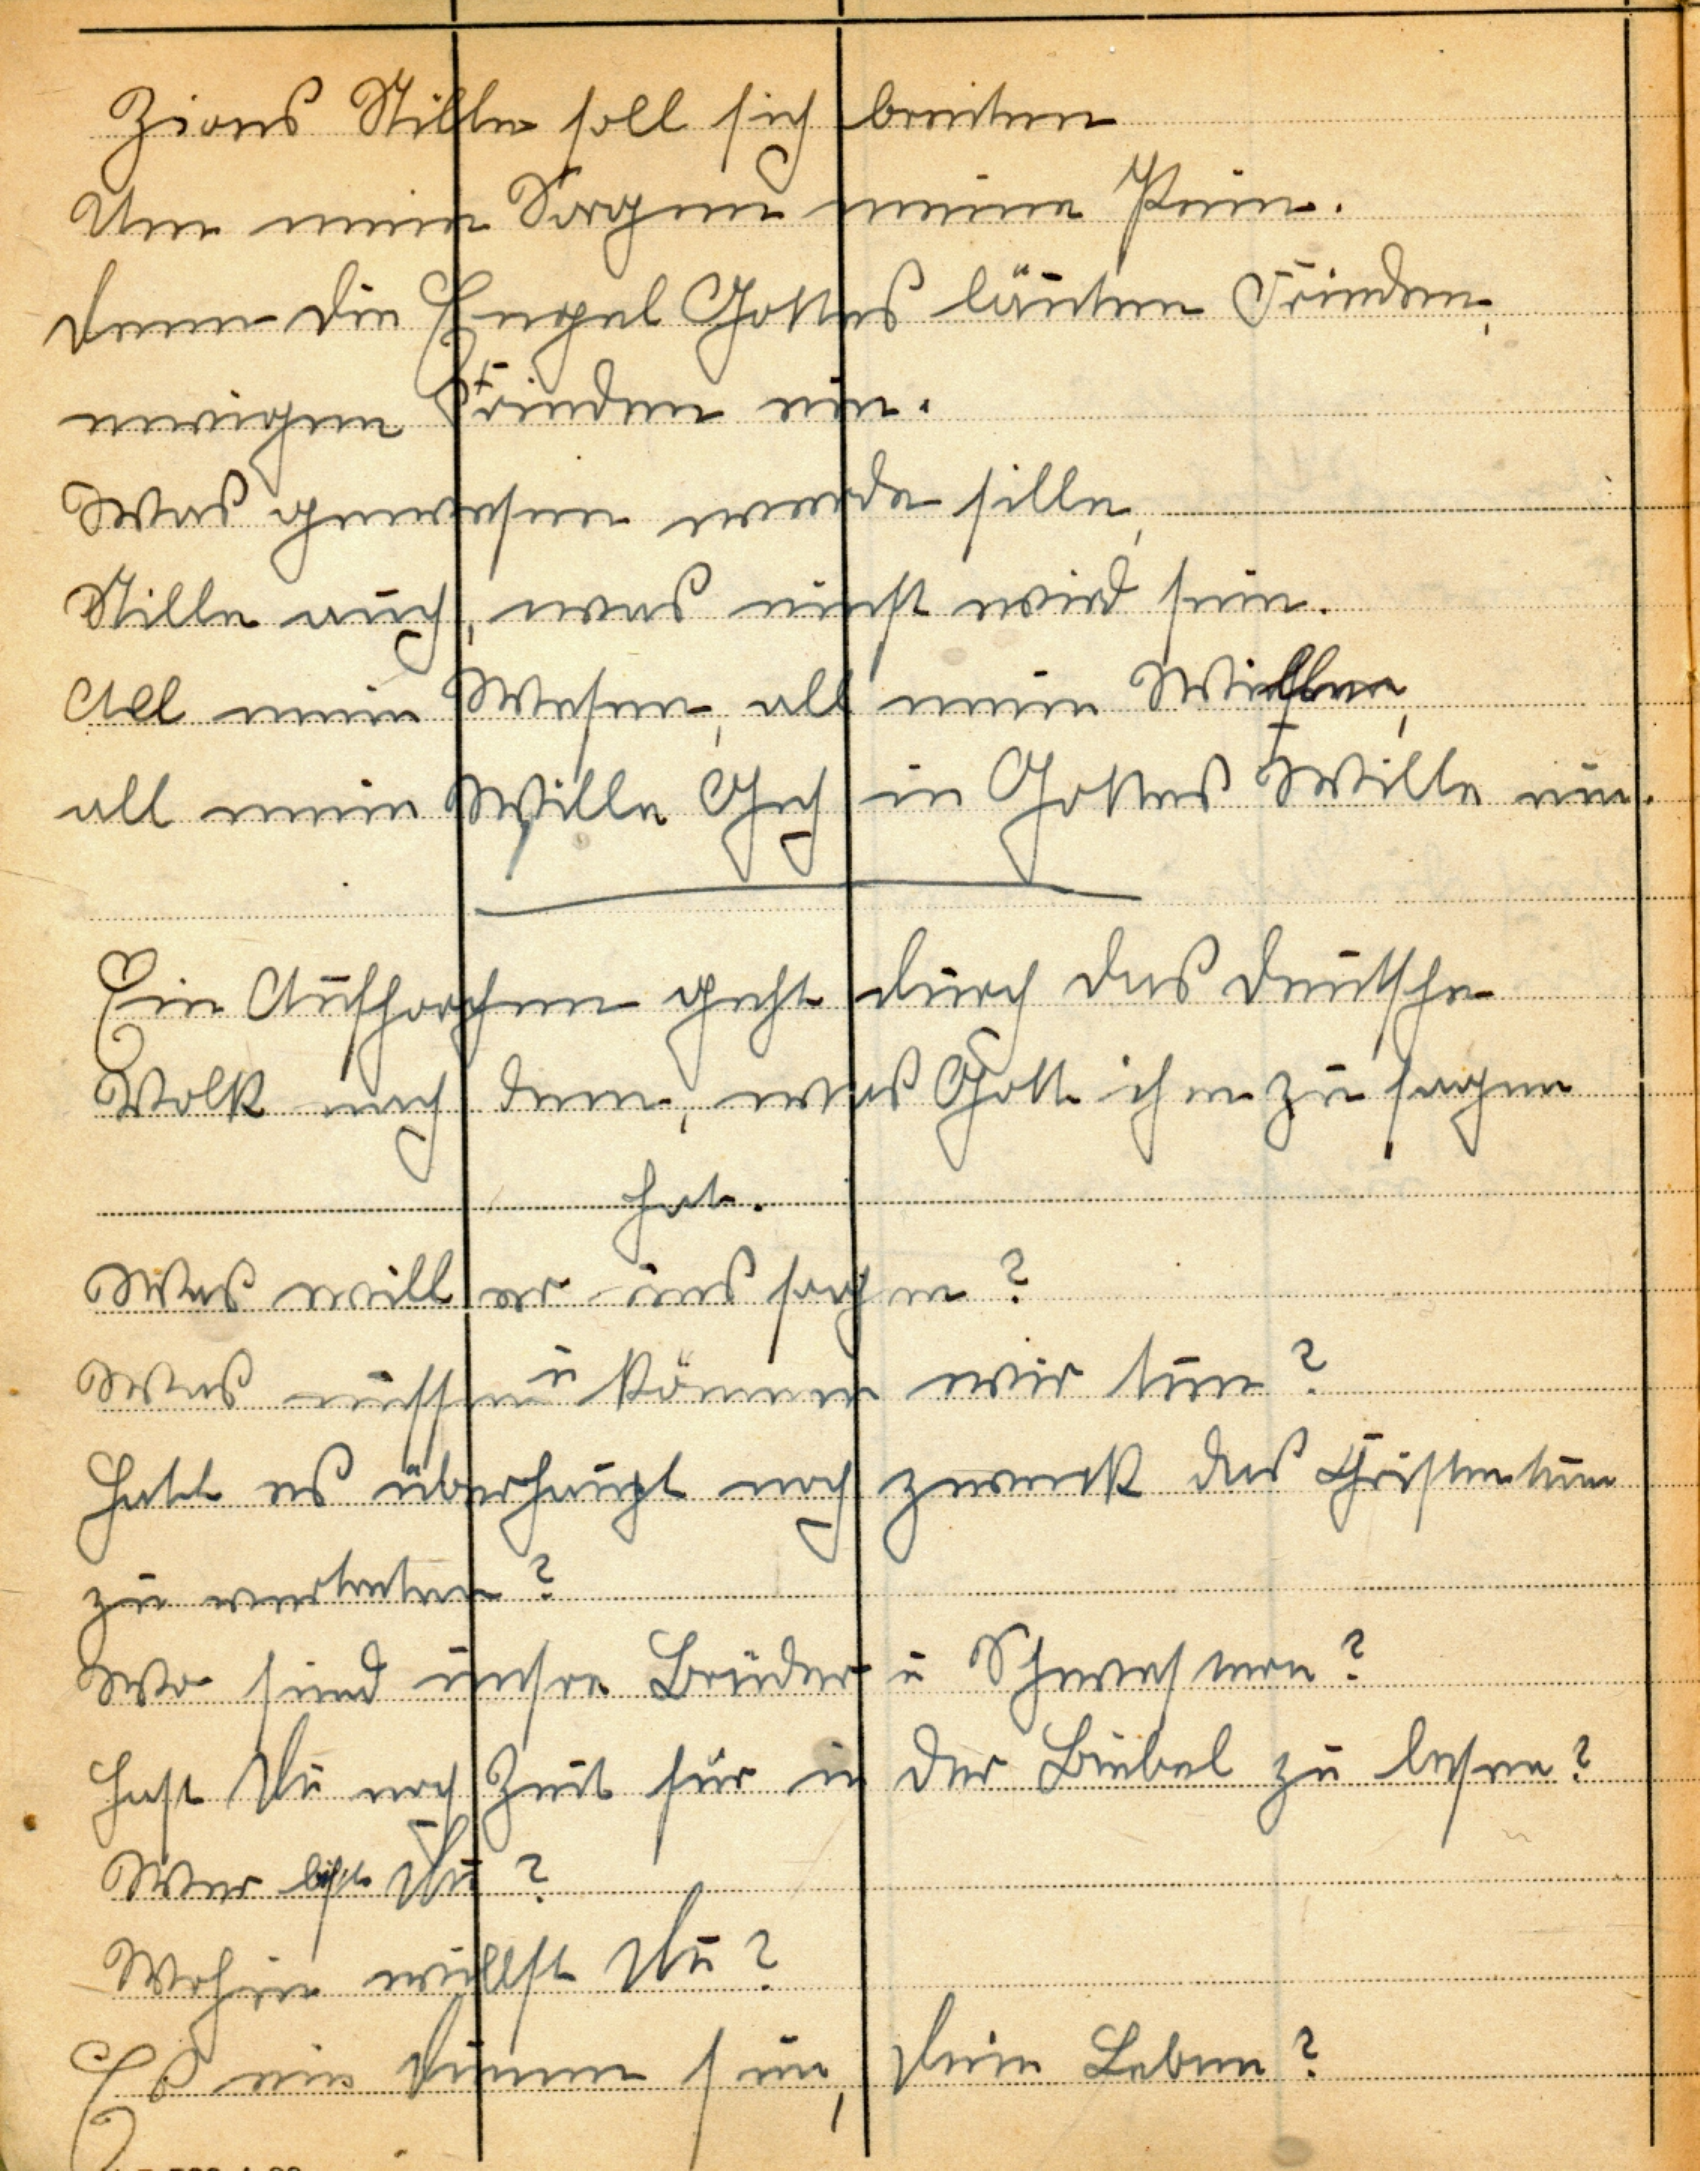 Zions Stille soll sich breiten
Um mein Sorgen meine Pein.
Denn die Engel Gottes läuten Frieden,
ewigen Frieden ein.
Was gewesen werde sille,
Stille auch, was einst wird sein.
All mein Wesen, all mein Willen,
all mein Wille Geh in Gottes Wille ein.
Ein Aufhorchen geht durch das deutsche
Volk nach dem, was Gott ihm zu sagen
hat.
Was will er uns sagen?
Was müssen u können wir tun?
Hatt es überhaupt noch zweck das Christentum
zu vertreten?
Wo sind unsre Brüder u Schwestern?
Hast Du noch Zeit für in der Biebel zu lesen?
Wer bist Du?
Wohin willst Du?
Ist ein Dienen sein, Dein Leben?